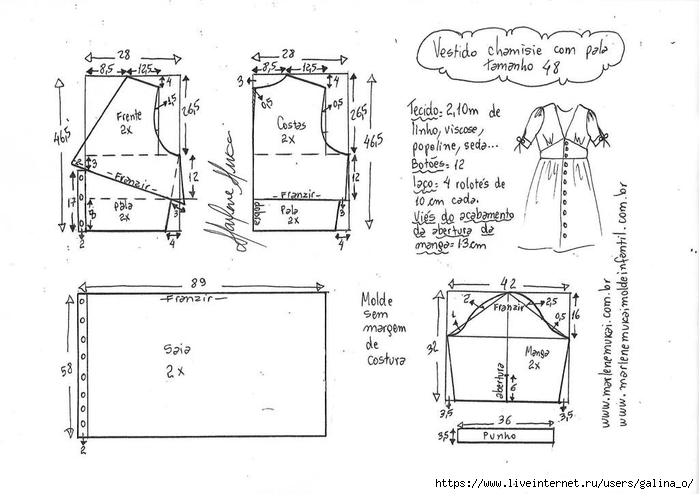 Vestido chamisie com pala
tamanho 48
28
8,5
12,5
4
1,5
26,5
46,5
Frente
2x
3
Franzir
12
17
8
Pala
2x
3
2
4
28
8,5
12,5
3
4
0,5
0,5
26,5
46,5
Costas
2x
12
Franzir
Pala
2x
dobra
3
4
Marlene Mukai
Tecido= 2,10m de
linho, viscose,
popoline, seda...
Botões= 12
laço= 4 rolotés de
10 cm cada.
Viés do acabamento
da abertura da
manga= 13cm
89
Franzir
58
Saia
2x
2
Molde
sem
margem
de
costura
42
2
Franzir
2,5
1
0,5
16
32
Manga
2x
abertura
3,5
3,5
36
3,5
Punho
www.marlenemukai.com.br
www.marlenemukaimoldeinfantil.com.br
https://www.liveinternet.ru/users/galina_o/